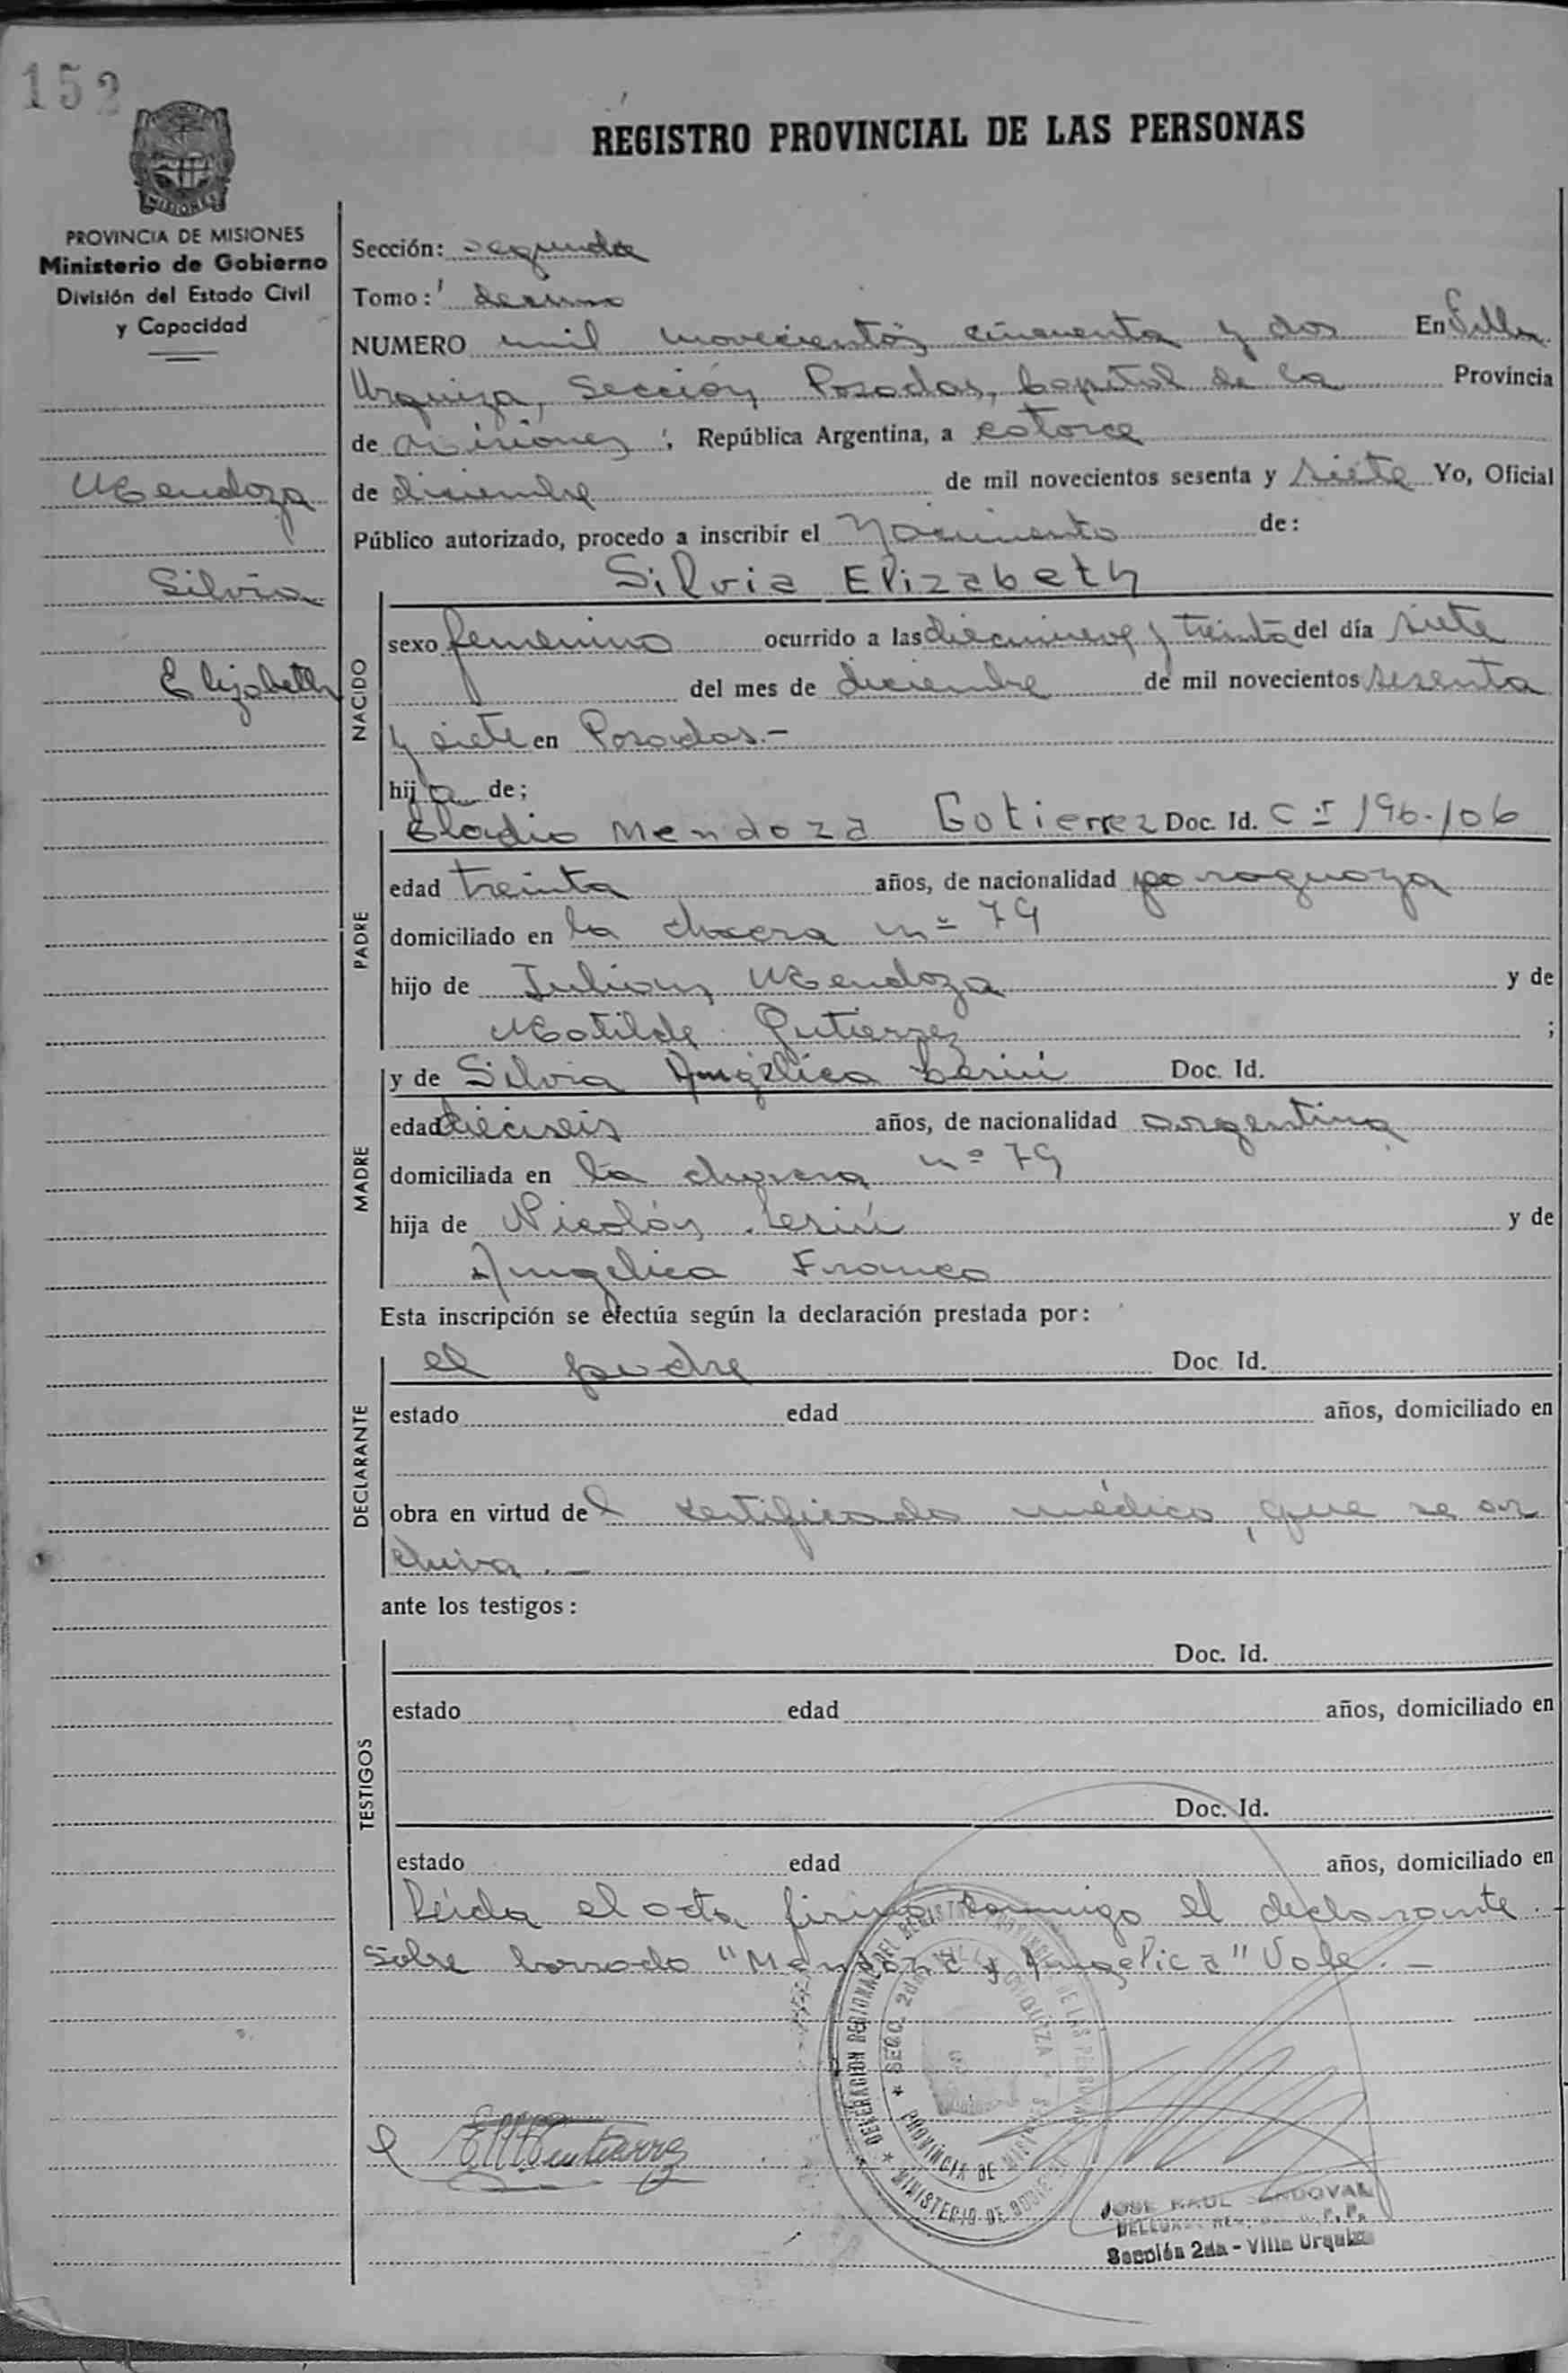 152
REGISTRO PROVINCIAL DE LAS PERSONAS
MISIONES
PROVINCIA DE MISIONES
Ministerio de Gobierno
División del Estado Civil
y Capacidad
Mendoza
Silvia
Elizabeth
Sección: segunda
Tomo: decimo
NUMERO mil novecientos cincuenta y dos En Villa
Urquiza, Sección Posadas, Capital de la Provincia
de Misiones, República Argentina, a catorce
de diciembre de mil novecientos sesenta y siete Yo, Oficial
Público autorizado, procedo a inscribir el Nacimiento de:
Silvia Elizabeth
NACIDO
sexo femenino ocurrido a las diecinueve y treinta del día siete
del mes de diciembre de mil novecientos sesenta
y siete en Posadas.-
hija de;
PADRE
Eladio Mendoza Gutierrez Doc. Id. C I 196.106
edad treinta años, de nacionalidad paraguaya
domiciliado en la chacra nº 79
hijo de Julian Mendoza y de
Matilde Gutierrez ;
MADRE
y de Silvia Angélica Doc. Id.
edad dieciseis años, de nacionalidad argentina
domiciliada en la chacra nº 79
hija de Nicolás y de
Angelica Franco
Esta inscripción se efectúa según la declaración prestada por:
DECLARANTE
el padre Doc Id.
estado edad años, domiciliado en
obra en virtud del certificado médico, que se ar
chiva.-
ante los testigos:
TESTIGOS
Doc. Id.
estado edad años, domiciliado en
Doc. Id.
estado edad años, domiciliado en
Leida el acta firma conmigo el declarante.-
Sobre borrado "Mendoza y Angelica" Vale.-
DELEGACION REGIONAL DEL REGISTRO PROVINCIAL DE LAS PERSONAS
SECC. 2da VILLA URQUIZA
PROVINCIA DE MISIONES
MINISTERIO DE GOBIERNO
JOSE RAUL SANDOVAL
Sección 2da - Villa Urquiza